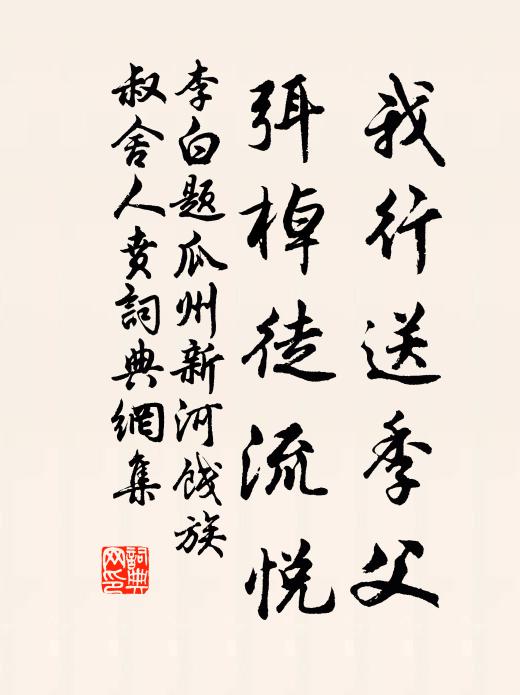 我行送季父
弭棹徒流悦
李白题瓜州新河饯族
叔舍人贲詞典網集
詞典网印